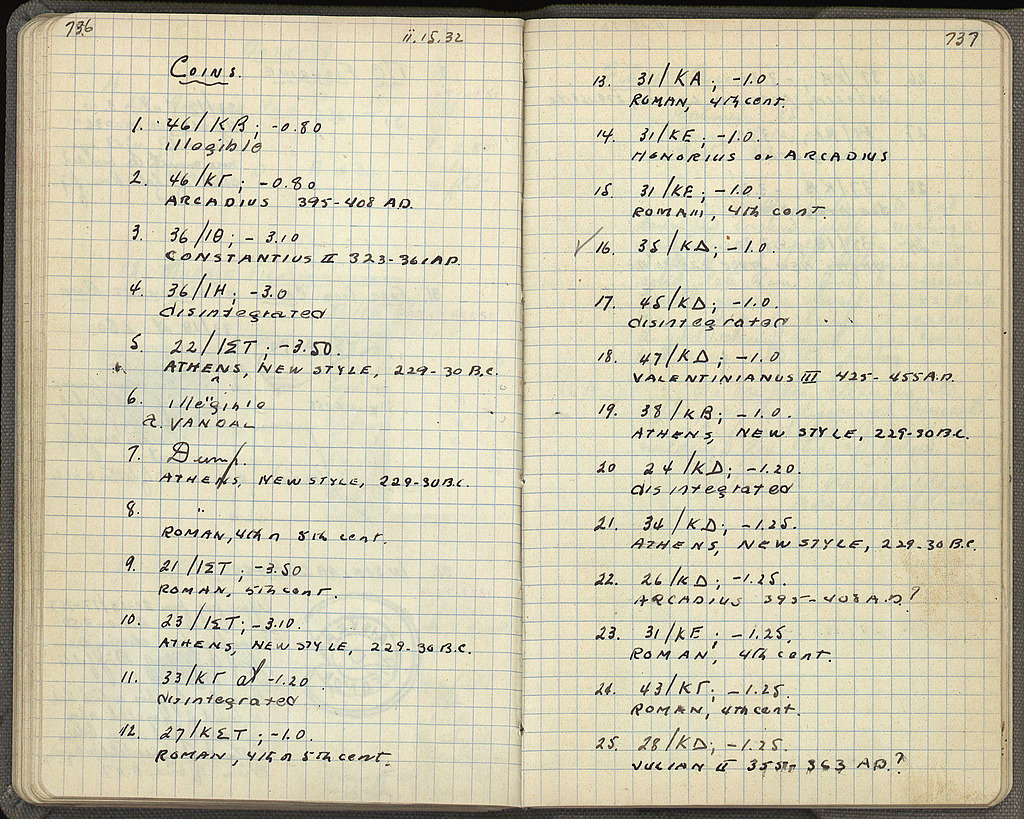 736
ii.15.32
COINS.
1. 46/KB; -0.80
illegible
2. 46/ΚΓ; -0.80
ARCADIUS 395-408 A.D.
3. 36/ΙΘ; -3.10
CONSTANTIUS II 323-361 A.D.
4. 36/ΙΗ; -3.0
disintegrated
5. 22/ΙΣΤ; -3.50.
ATHENS, NEW STYLE, 229-30 B.C.
6. illegible
a. VANDAL
7. Dump.
ATHENS, NEW STYLE, 229-30 B.C.
8. "
ROMAN, 4th or 5th cent.
9. 21/ΙΣΤ; -3.50
ROMAN, 5th cent.
10. 23/ΙΣΤ; -3.10.
ATHENS, NEW STYLE, 229-30 B.C.
11. 33/ΚΓ at -1.20
disintegrated
12. 27/ΚΣΤ; -1.0.
ROMAN, 4th or 5th cent.
737
13. 31/ΚΑ; -1.0.
ROMAN, 4th cent.
14. 31/ΚΕ; -1.0.
HONORIUS or ARCADIUS
15. 31/ΚΕ; -1.0.
ROMAN, 4th cent.
✓ 16. 35/ΚΔ; -1.0.
17. 45/ΚΔ; -1.0.
disintegrated
18. 47/ΚΔ; -1.0
VALENTINIANUS III 425-455 A.D.
19. 38/ΚΒ; -1.0.
ATHENS, NEW STYLE, 229-30 B.C.
20 24/ΚΔ; -1.20.
disintegrated
21. 34/ΚΔ; -1.25.
ATHENS, NEW STYLE, 229-30 B.C.
22. 26/ΚΔ; -1.25.
ARCADIUS 395-408 A.D.?
23. 31/ΚΕ; -1.25.
ROMAN, 4th cent.
24. 43/ΚΓ; -1.25.
ROMAN, 4th cent.
25. 28/ΚΔ; -1.25.
JULIAN II 355-363 A.D.?